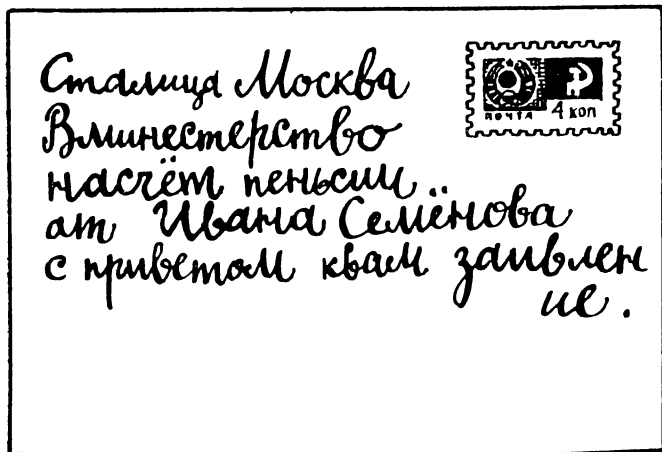 Сталица Москва
Вминестерство
насчёт пеньсии
от Ивана Семёнова
с приветом квам заивлен
ие.
ПОЧТА 4 КОП